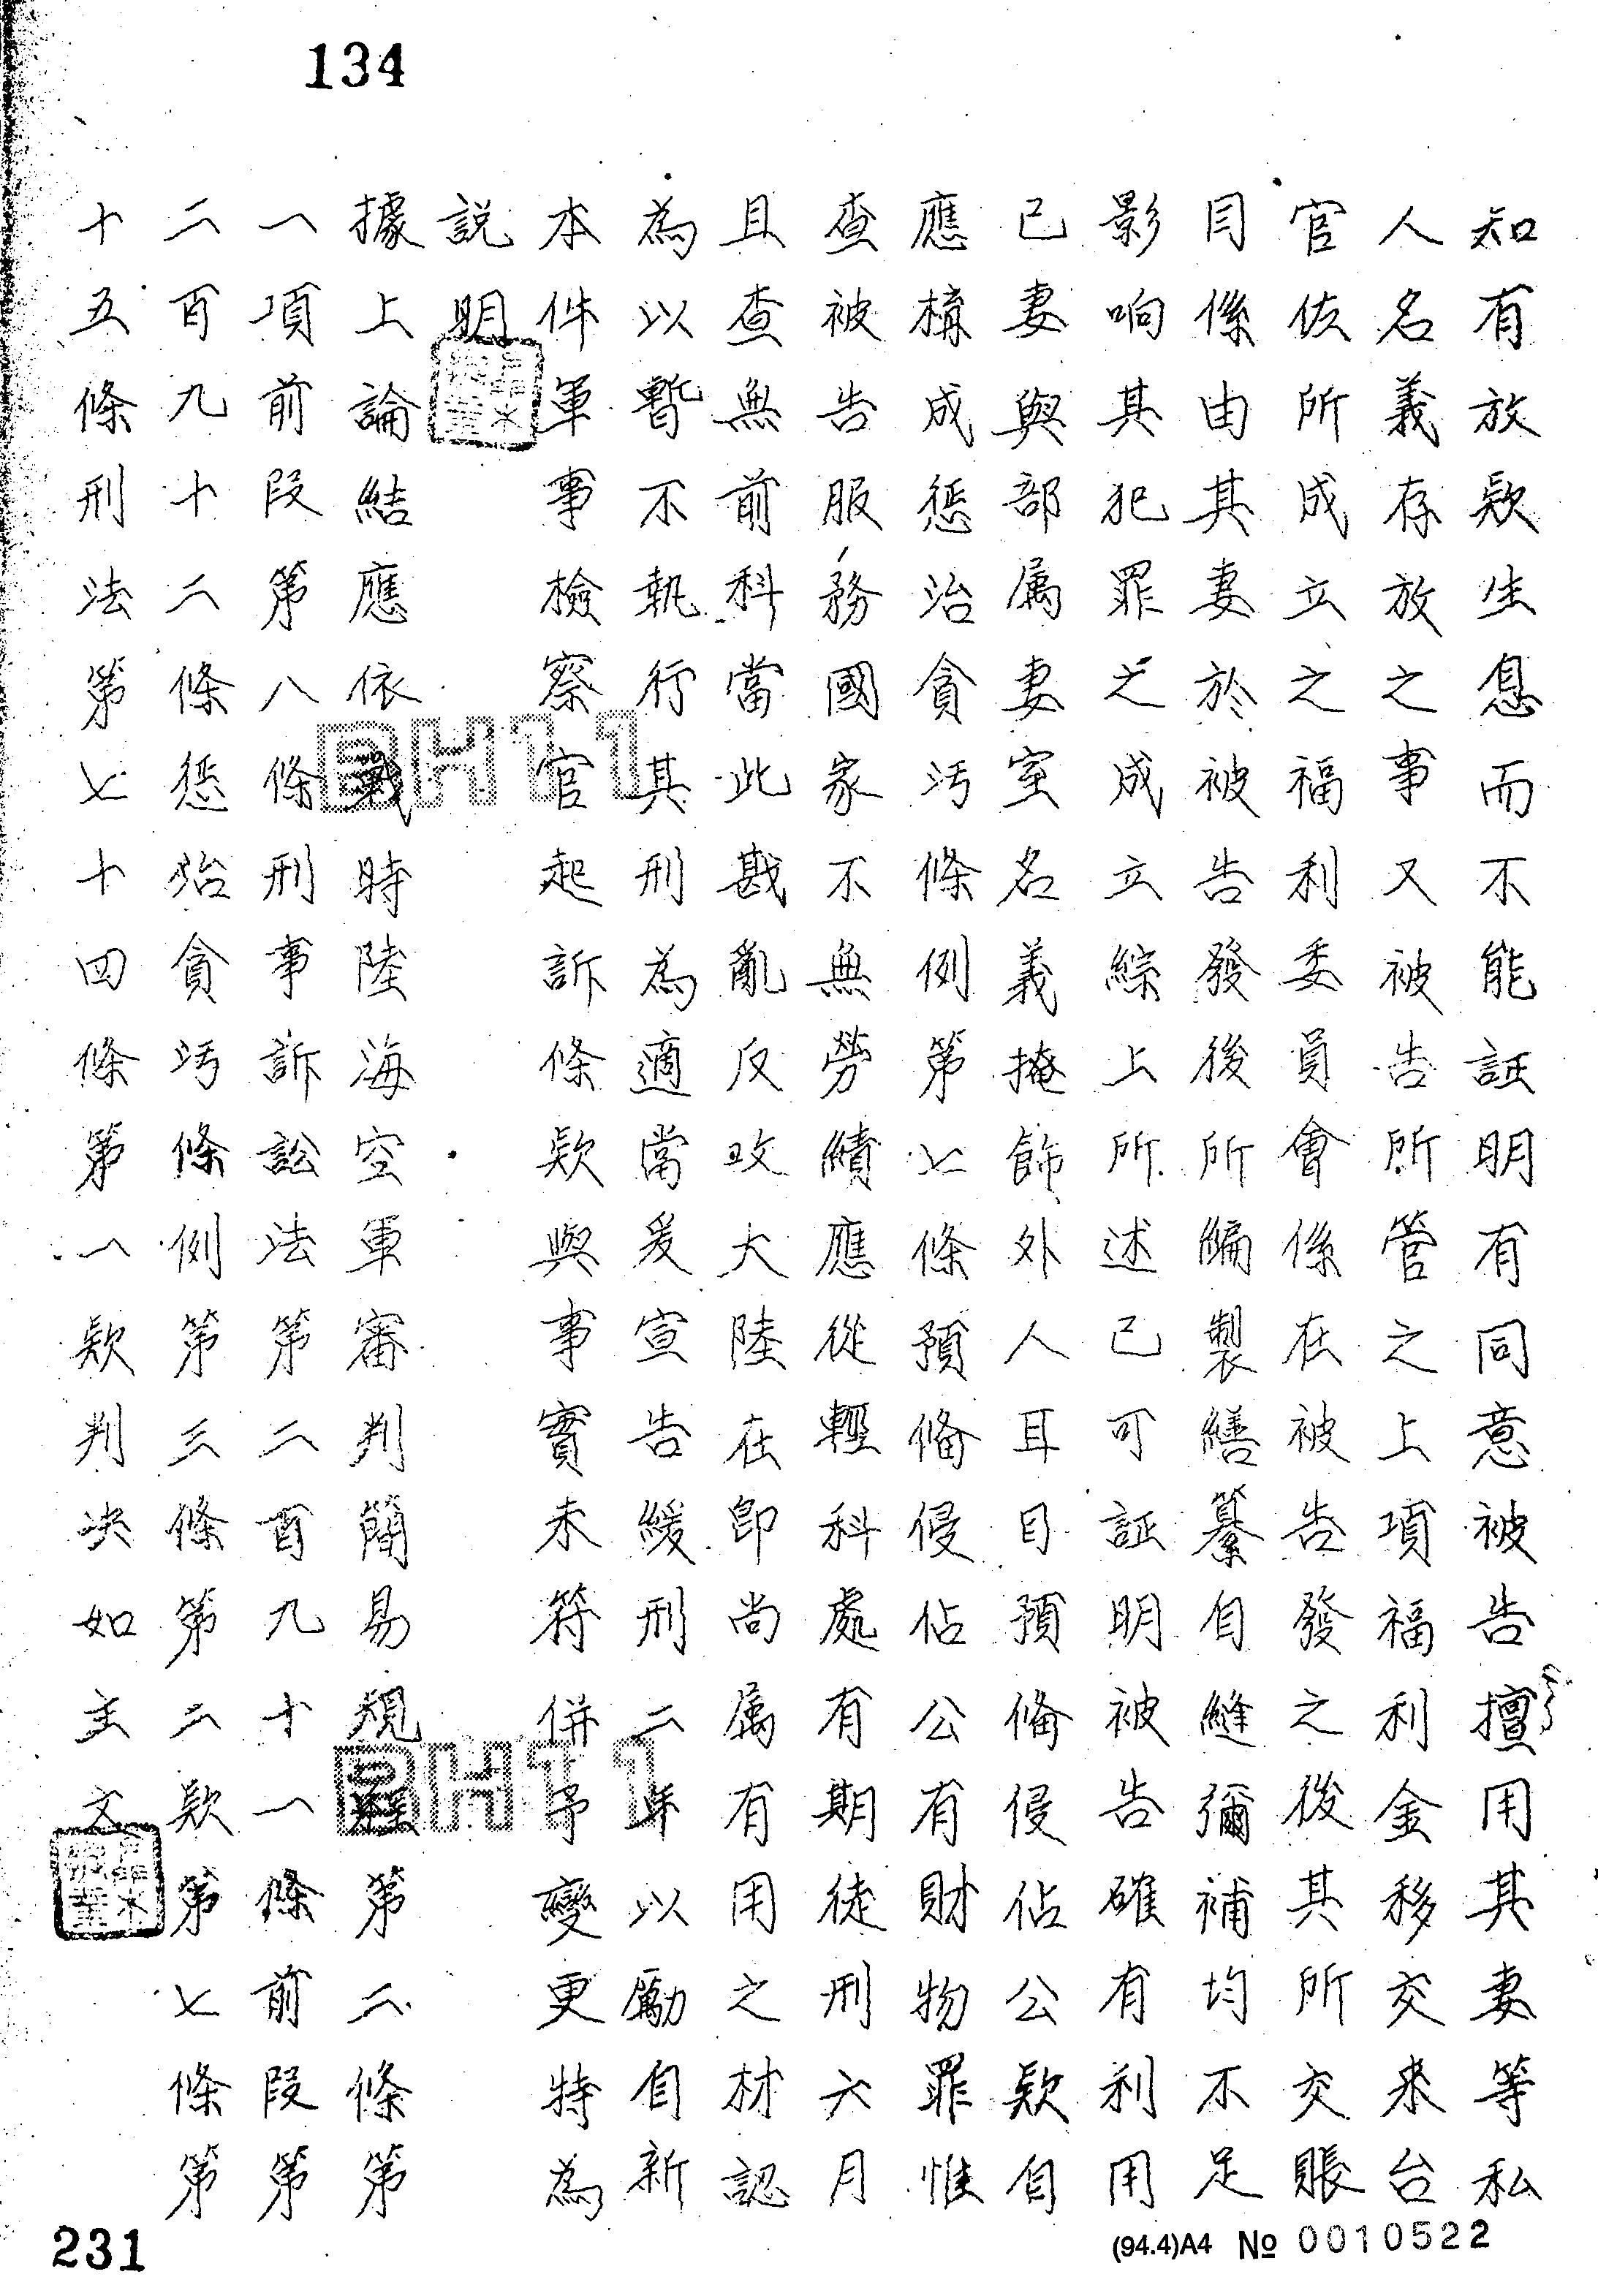 134
知有放欵生息而不能証明有同意被告擅用其妻等私
人名義存放之事又被告所管之上項福利金移交来台
官佐所成立之福利委員會係在被告發之後其所交賬
目係由其妻於被告發後所編製繕纂自縫彌補均不足
影响其犯罪之成立綜上所述已可証明被告確有利用
已妻與部属妻室名義掩飾外人耳目預備侵佔公欵自
應構成惩治貪污條例第七條預備侵佔公有財物罪惟
查被告服務國家不無勞績應從輕科處有期徒刑六月
且查無前科當此戡亂反攻大陸在即尚属有用之材認
為以暫不執行其刑為適當爰宣告緩刑二年以勵自新
本件軍事檢察官起訴條欵與事實未符併予變更特為
説明
據上論結應依戰時陸海空軍審判簡易規程第二條第
一項前段第八條刑事訴訟法第二百九十一條前段第
二百九十二條惩治貪污條例第三條第二欵第七條第
十五條刑法第七十四條第一欵判决如主文
BH11
BH11
231
(94.4)A4 № 0010522